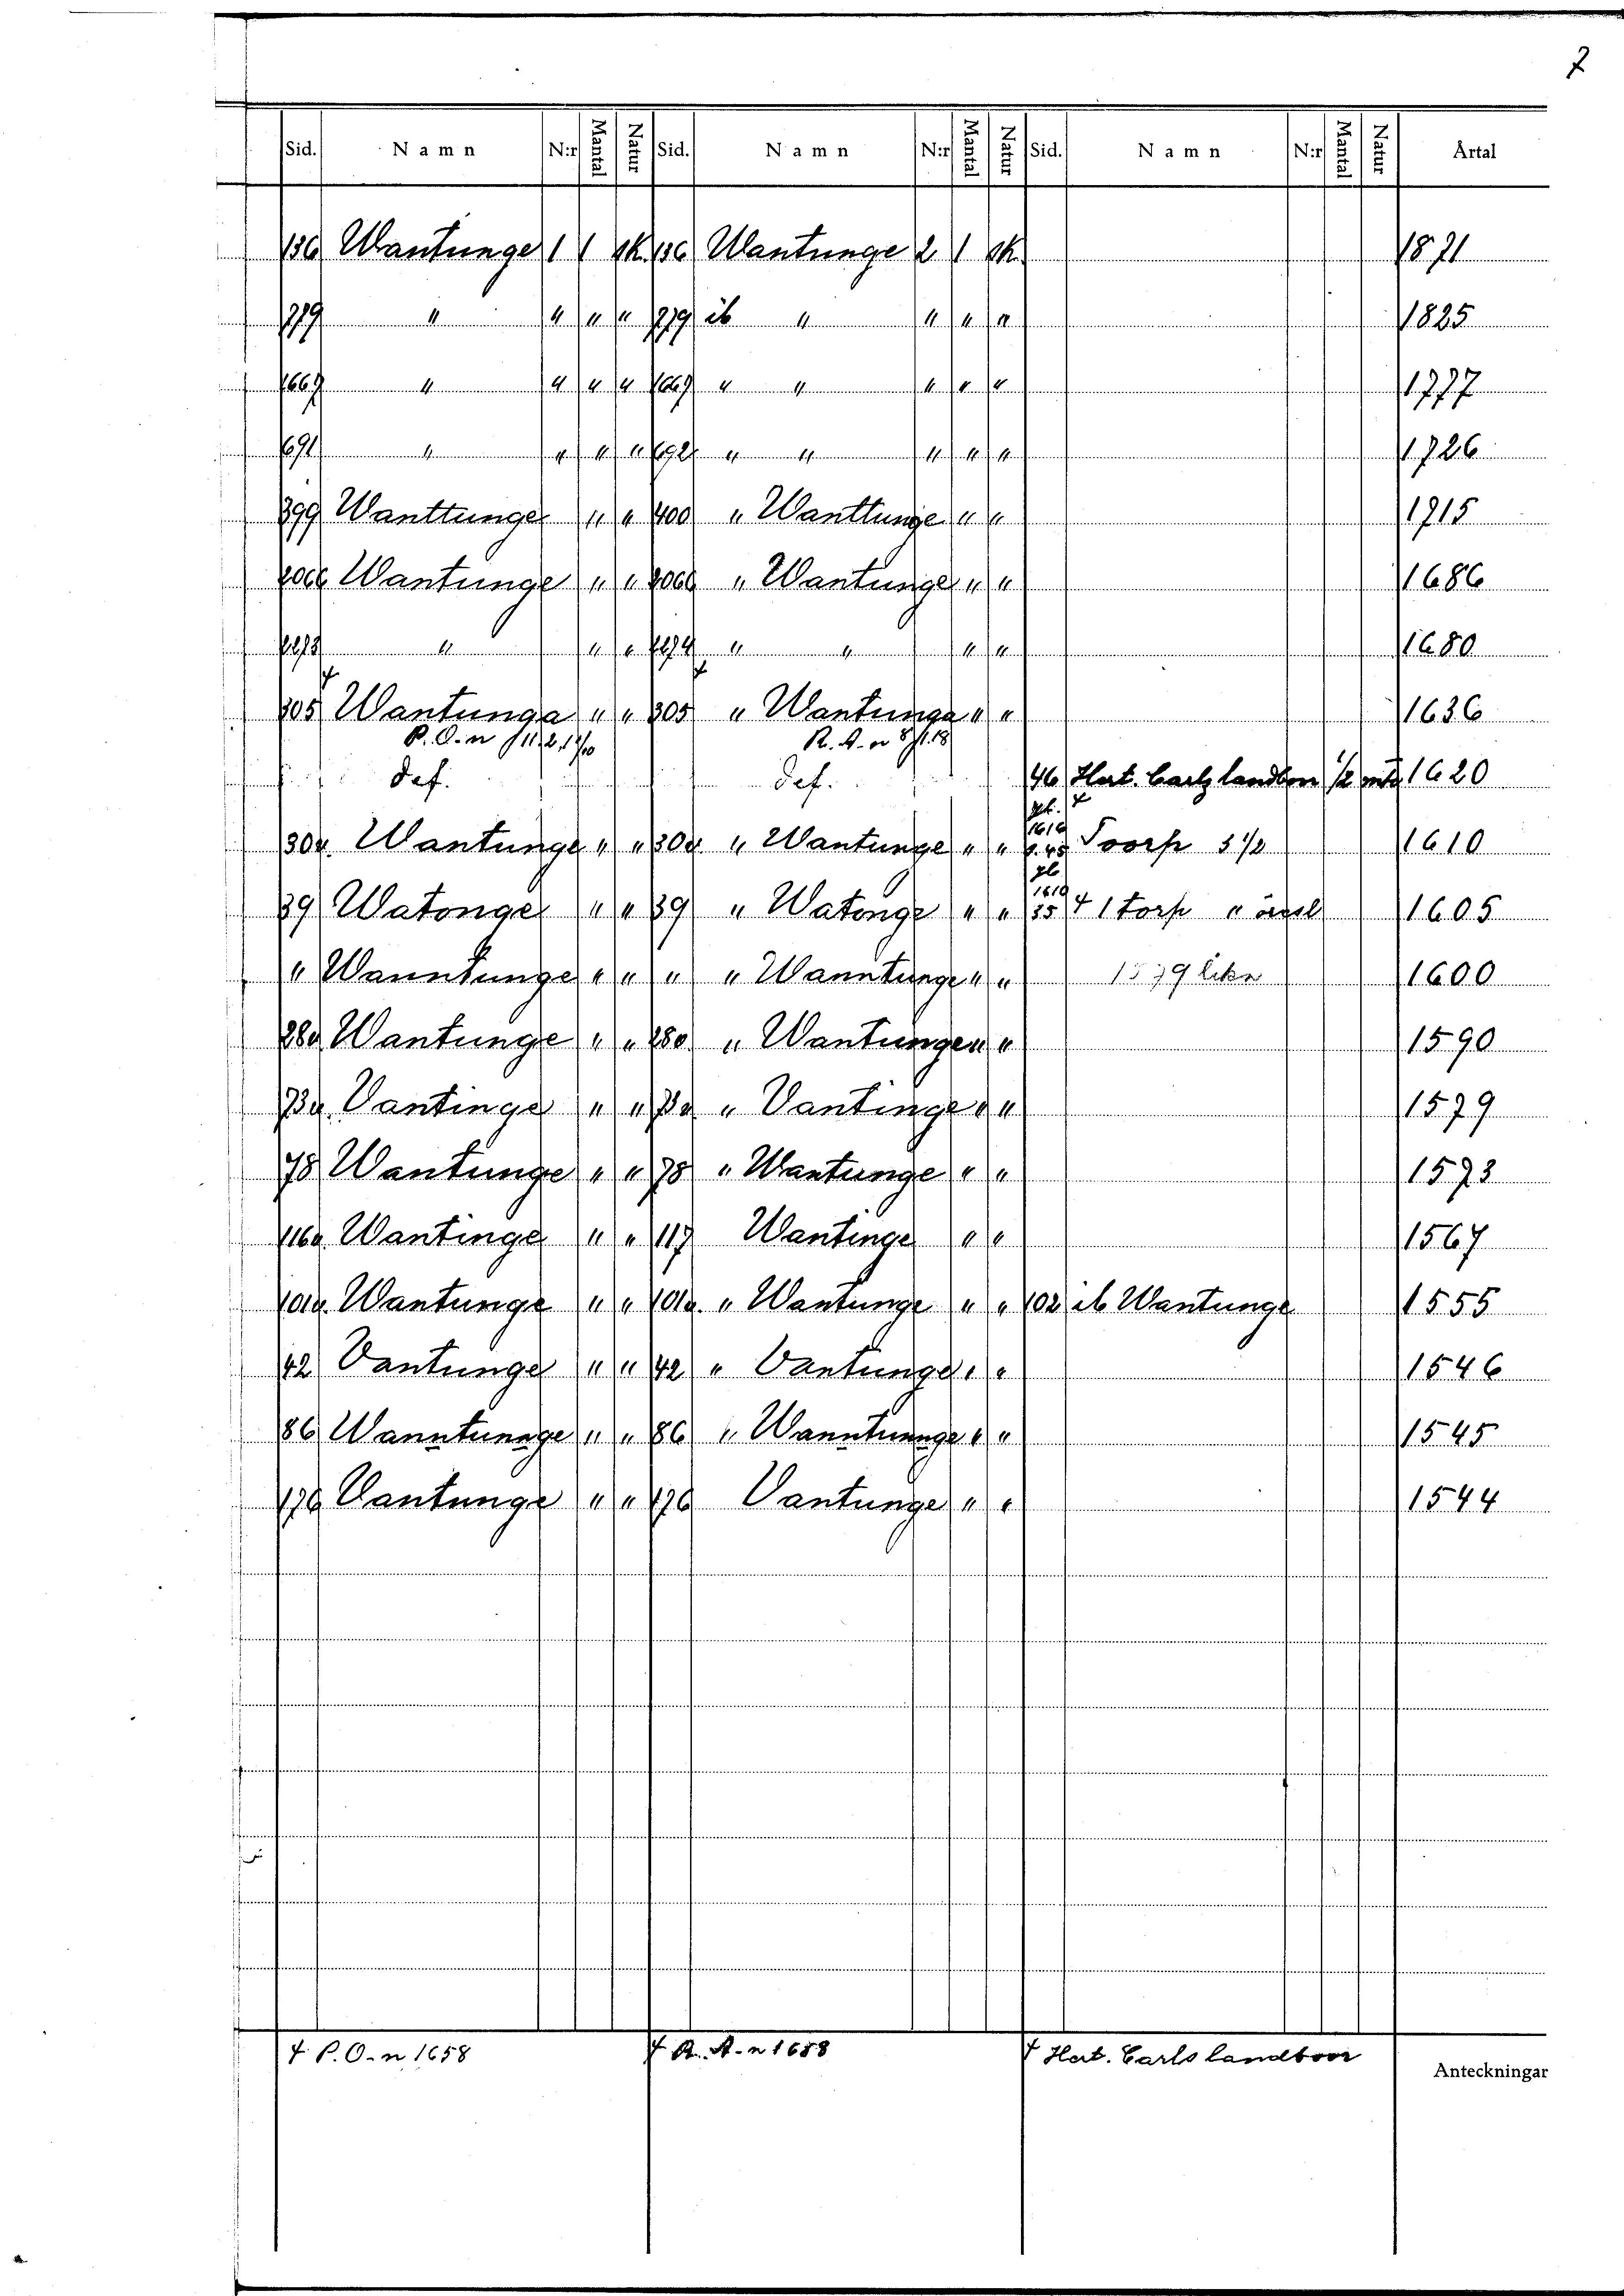 7
Sid. Namn N:r Mantal Natur Sid. Namn N:r Mantal Natur Sid. Namn N:r Mantal Natur Årtal
136 Wantunge 1 1 sk 136 Wantunge 2 1 sk 1871
1279 " " " " 1279 ib " " " " 1825
1667 " " " " 1667 " " " " " 1777
1691 " " " " 1692 " " " " " 1726
399 Wanttunge " " 400 " Wanttunge " " 1715
Wantunge " " " Wantunge " " 1686
" " " " " " " 1680
305 Wantunga " " 305 " Wantunga " " 1636
P. O. n R. A. n
def. def. 46 Hert. Carlz landbor 1/2 mtl 1620
jb. +
1610
30v. Wantunge " " 30v. " Wantunge " " Toorp 5 1/2 1610
jb
1610
39 Watonge " " 39 " Watonge " " 35 + 1 torp " 1605
" Wanntunge " " " " Wanntunge " " 1579 1600
280 Wantunge " " 280 " Wantunge " " 1590
73v. Vantinge " " 73v " Vantinge " " 1579
78 Wantunge " " 78 " Wantunge " " 1573
116v. Wantinge " " 117 Wantinge " " 1567
101v. Wantunge " " 101v. " Wantunge " " 102 ib Wantunge 1555
42 Vantunge " " 42 " Vantunge " " 1546
86 Wanntunnge " " 86 " Wanntunnge " " 1545
176 Vantunge " " 176 Vantunge " " 1544
+ P. O. n 1658 + R. A. n 1658 + Hert. Carls landboor Anteckningar